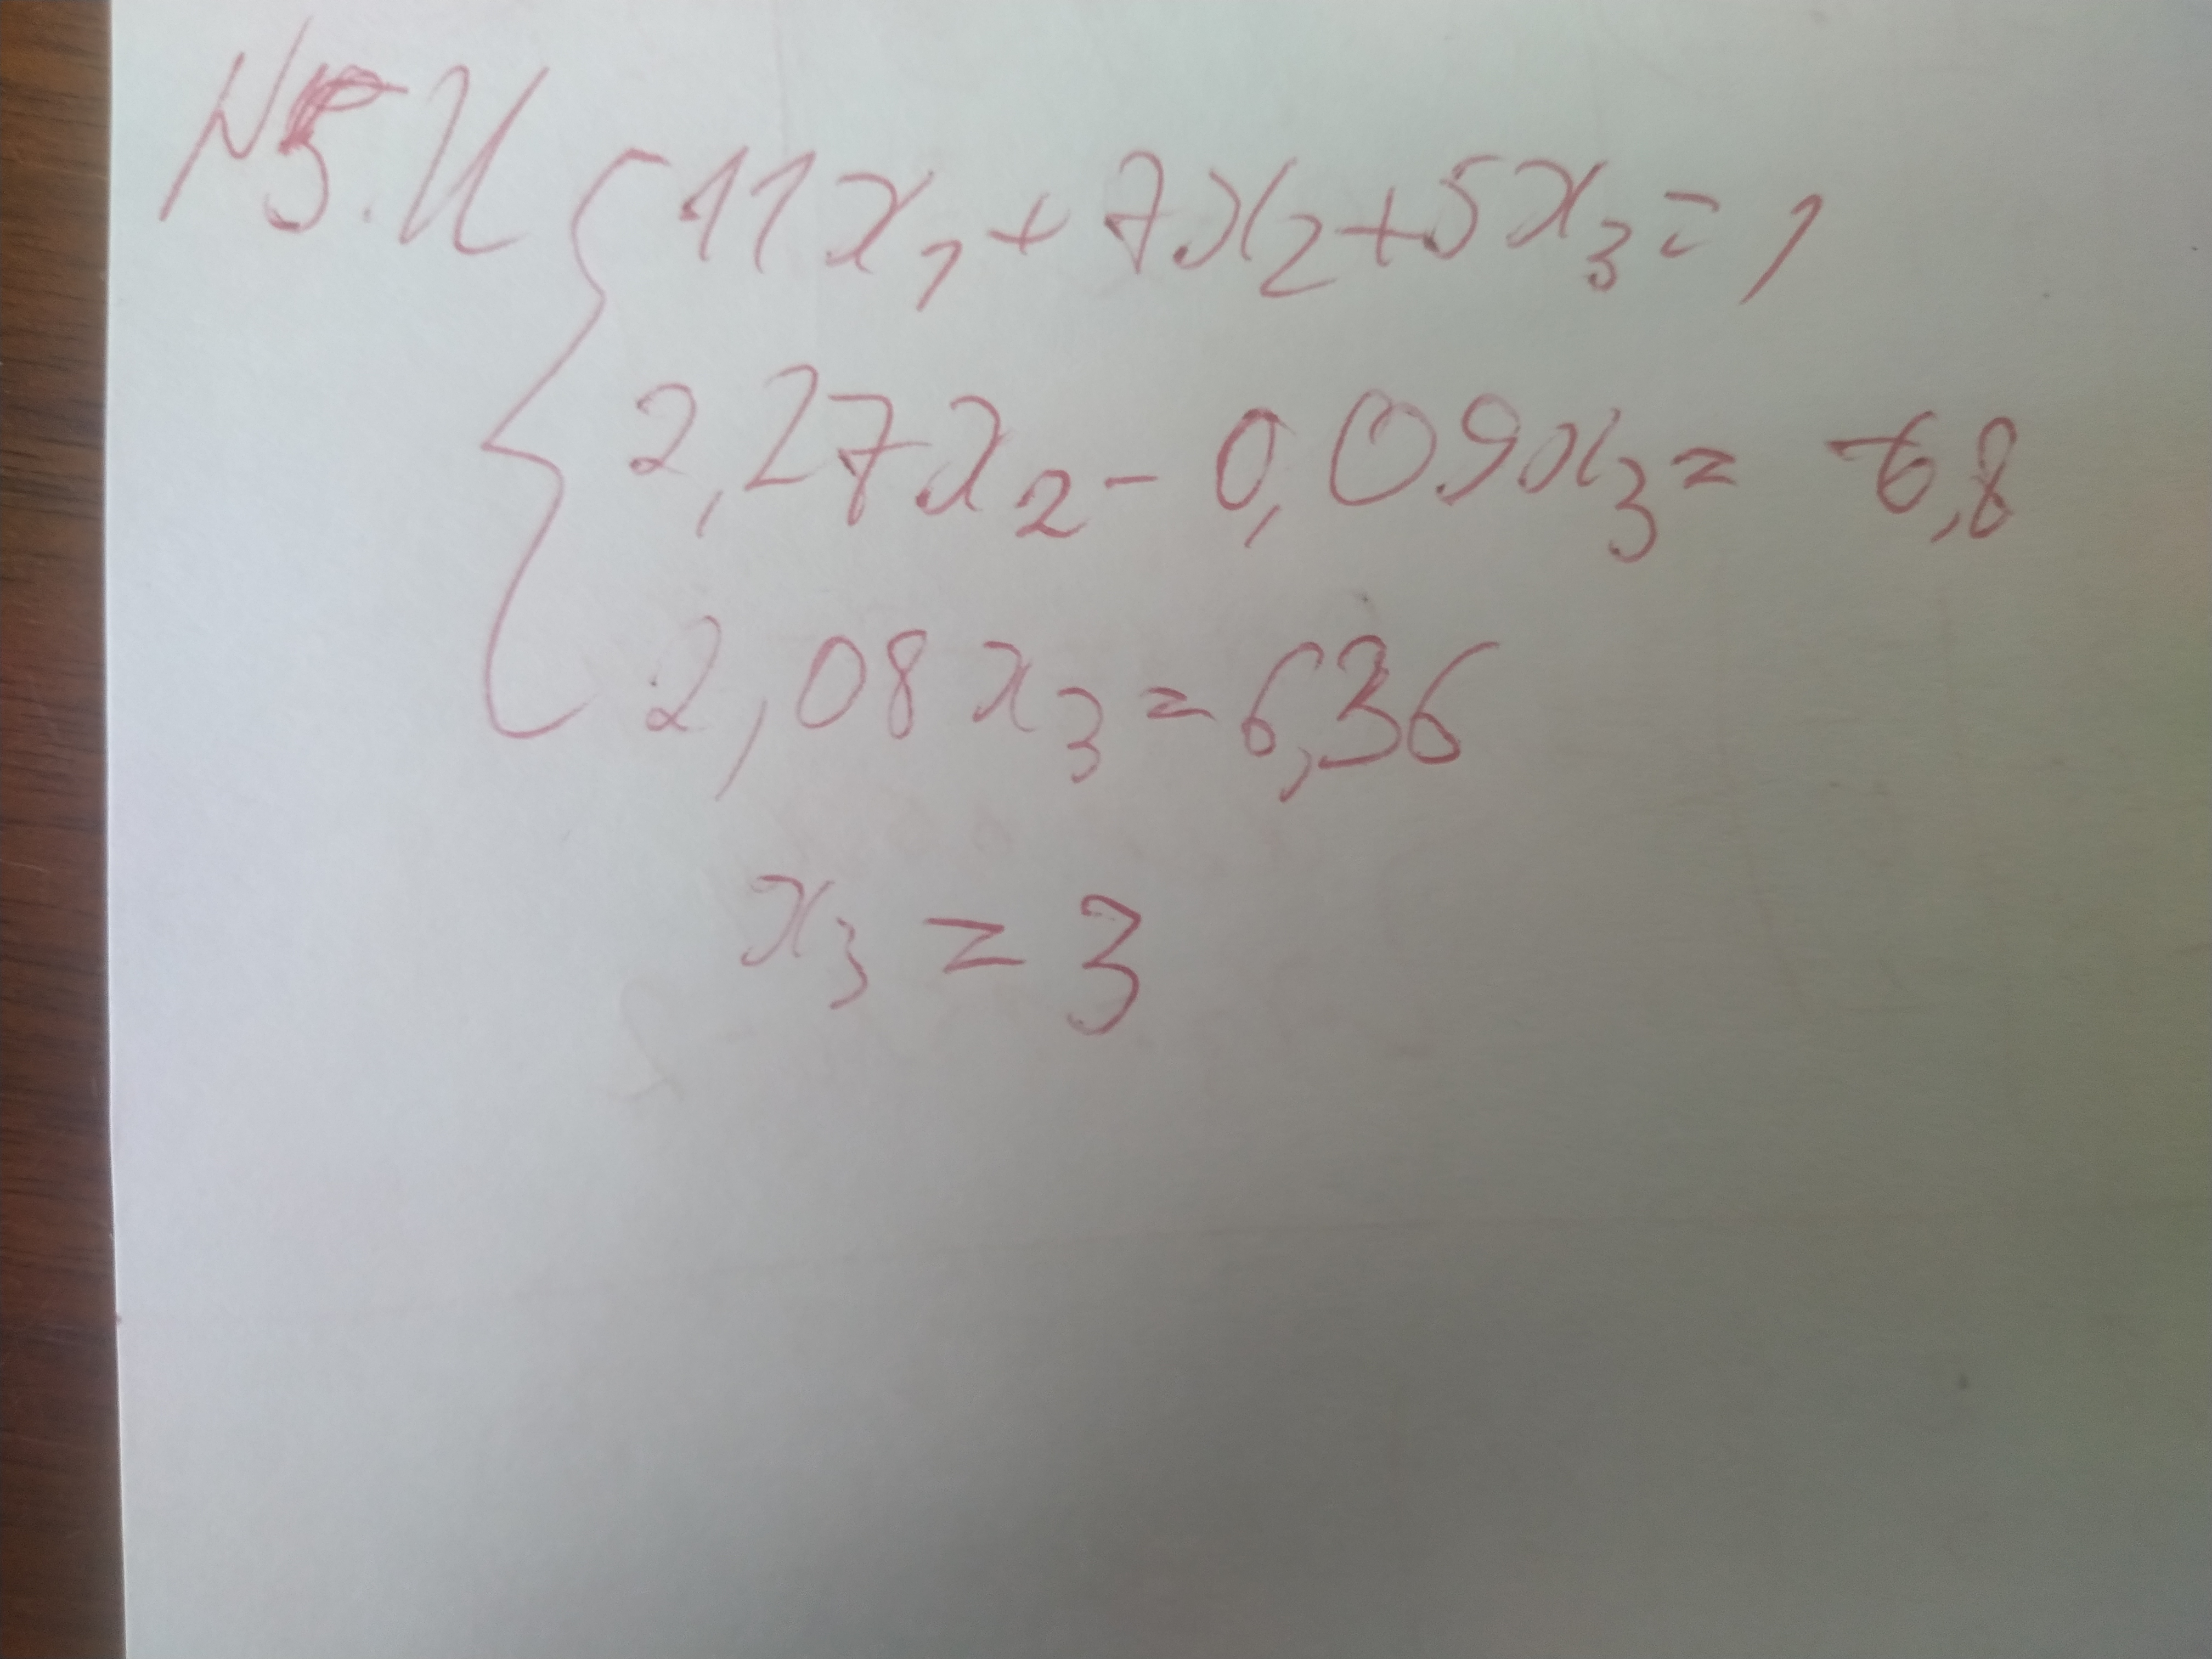 N5. И { 11x₁ + 7x₂ + 5x₃ = 1
2,27x₂ - 0,09x₃ = -6,8
2,08x₃ = 6,36
x₃ = 3